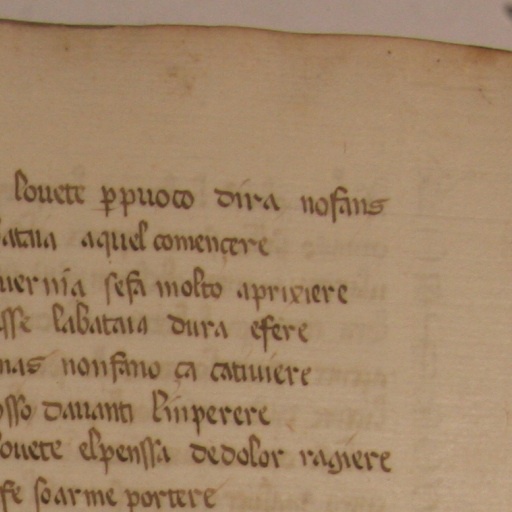 louete p̱puoco dira nofans
ataia aquel començere
uernia sefa molto aprixiere
sse labataia dura efere
mas nonfano ça catiuiere
osso dauanti linperere
ouete elpenssa dedolor ragiere
fe soarme portere